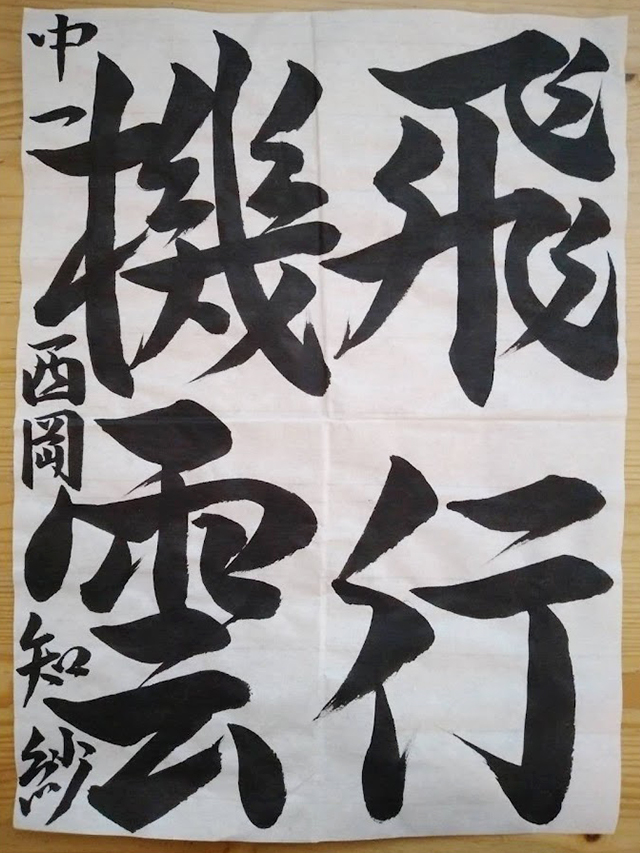 飛行
機雲
中一 西岡知紗